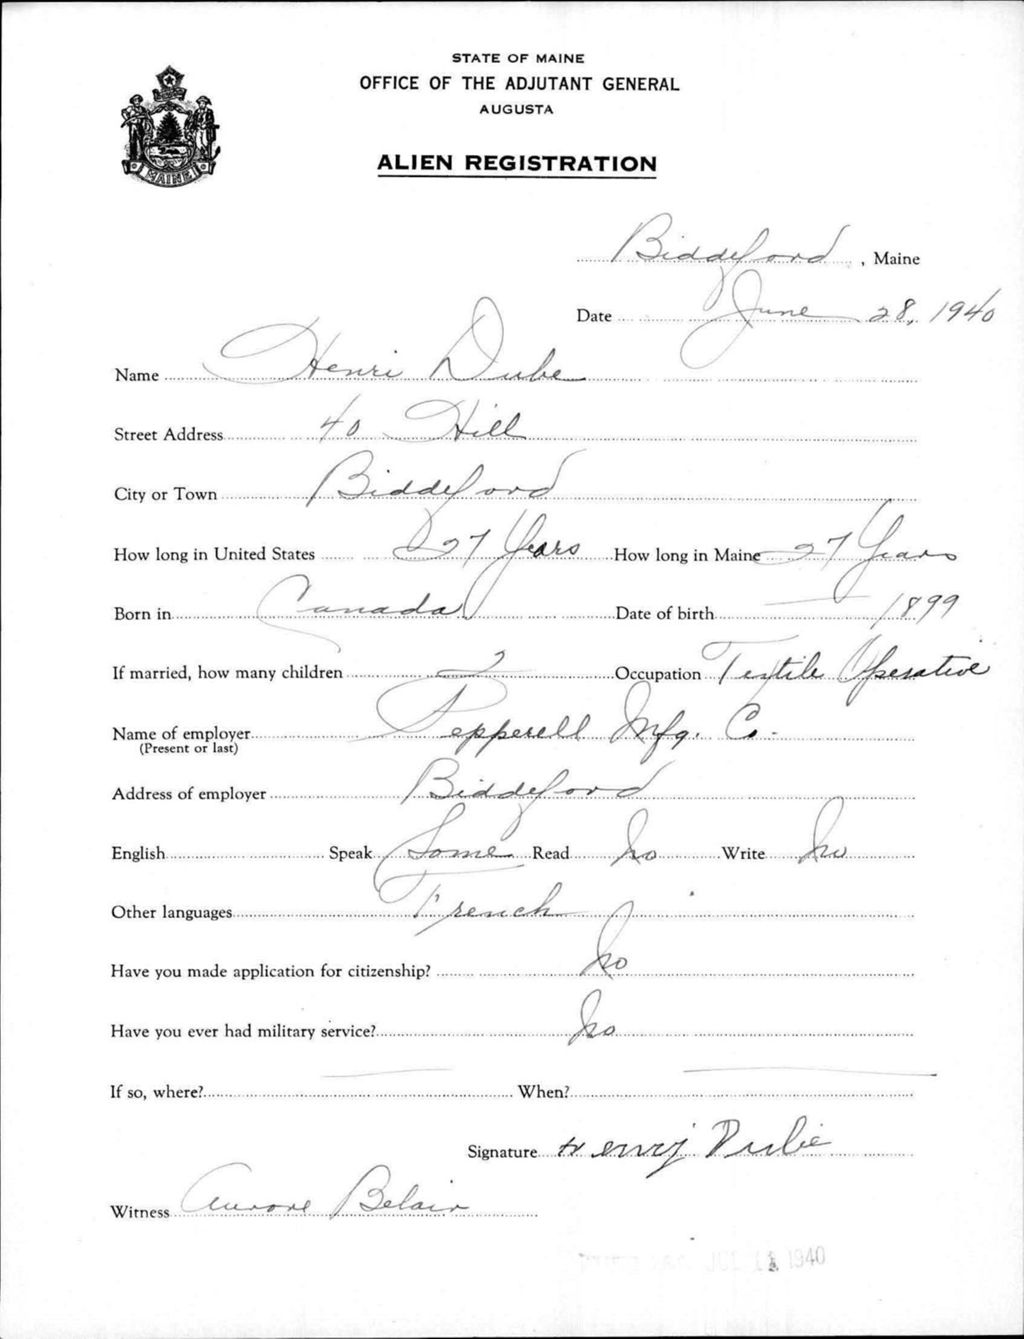 STATE OF MAINE
OFFICE OF THE ADJUTANT GENERAL
AUGUSTA
MAINE
ALIEN REGISTRATION
Biddeford, Maine
Date June 28, 1940
Name Henri Dube
Street Address 40 Hill
City or Town Biddeford
How long in United States 27 Years How long in Maine 27 Years
Born in Canada Date of birth — 1899
If married, how many children 2 Occupation Textile Operative
Name of employer Pepperell Mfg. Co.
(Present or last)
Address of employer Biddeford
English Speak Some Read No Write No
Other languages French
Have you made application for citizenship? No
Have you ever had military service? No
If so, where? — When? —
Signature Henry Dubie
Witness Aurore Belair
1940